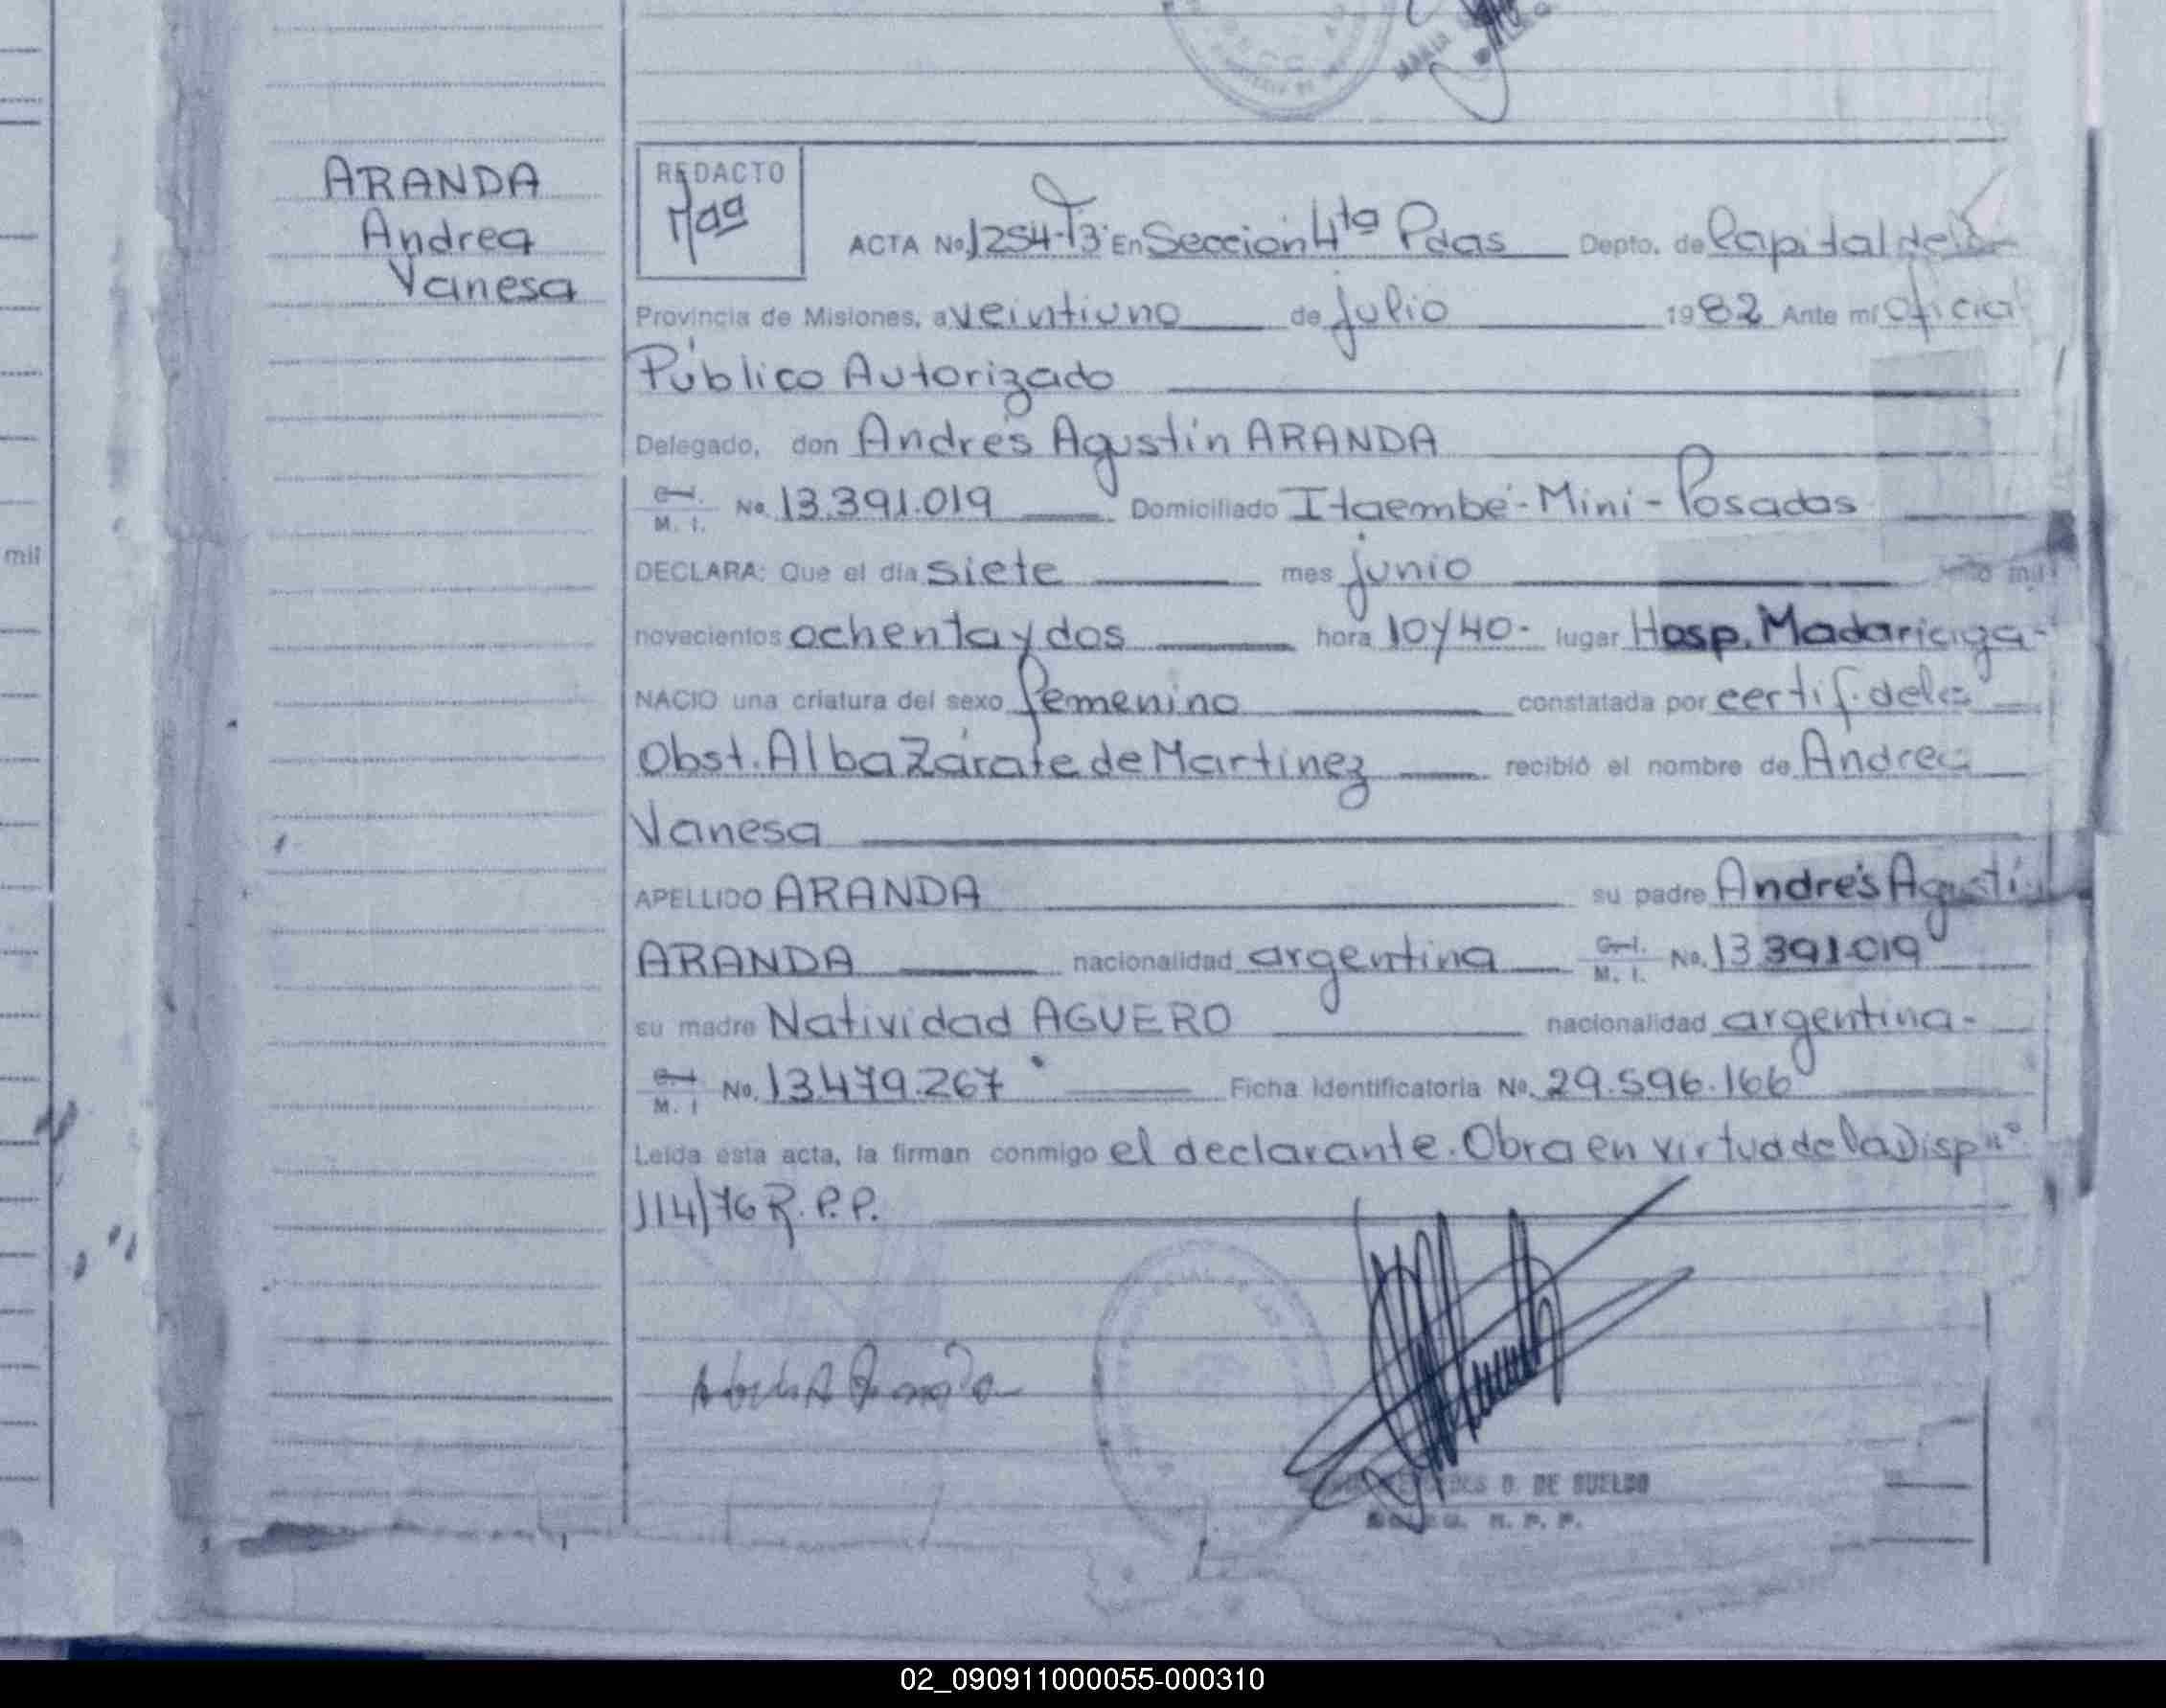 mil
ARANDA
Andrea
Vanesa
REDACTO
ACTA No 1254-T3 En Seccion 4ta Pdas Depto. de Capital de la
Provincia de Misiones, a veintiuno de julio 1982 Ante mí oficial
Público Autorizado
Delegado, don Andrés Agustín ARANDA
C. I.
M. I. No. 13.391.019 Domiciliado Itaembé-Miní-Posadas
DECLARA: Que el día siete mes junio mil
novecientos ochenta y dos hora 10y40- lugar Hosp. Madariaga-
NACIO una criatura del sexo femenino constatada por certif. de la
Obst. Alba Zárate de Martinez recibió el nombre de Andrea
Vanesa
APELLIDO ARANDA su padre Andrés Agustí
ARANDA nacionalidad argentina C. I. M. I. No. 13.391.019
su madre Natividad AGUERO nacionalidad argentina-
C. I.
M. I No. 13.479.267 Ficha Identificatoria No. 29.596.166
Leida esta acta, la firman conmigo el declarante. Obra en virtud de la Disp nº
114/76 R.P.P.
D. DE SUELDO
R. P. P.
02_090911000055-000310